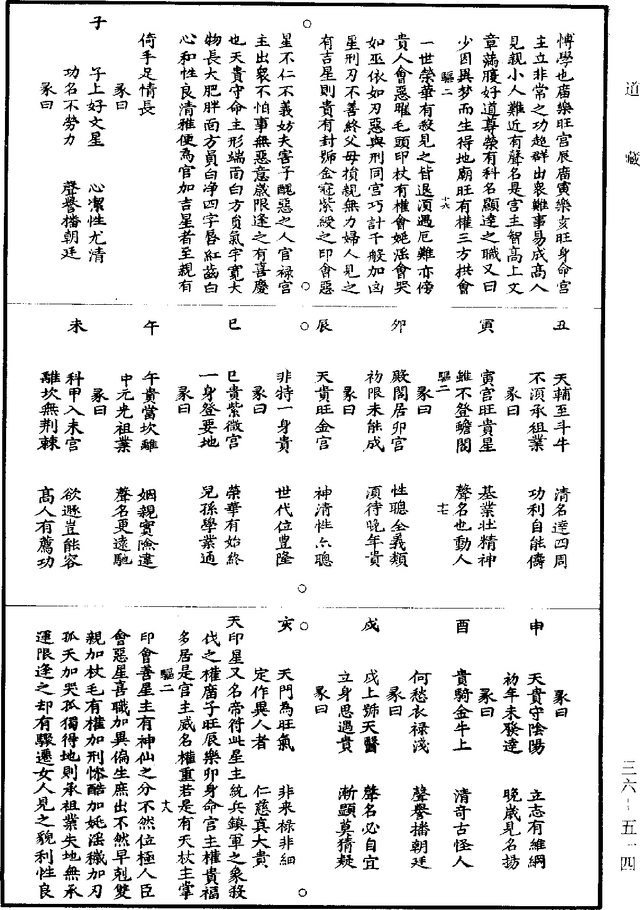 道藏
博學也廣樂旺宮辰廣寅樂亥旺身命宮
主立非常之功超群出衆難事易成高人
見親小人難近有聲名是宮主智高上文
章滿腹好道尊榮有科名顯達之職又曰
驅二 十六
少因異夢而生得地廟旺有權三方拱會
一世榮華有殺見之皆退須遇厄難亦傍
貴人會惡雖毛頭印杖有權會姚滛會哭
如巫依如刃惡與刑同宮巧計千般加凶
星刑刃不善終父母損親無力婦人見之
有吉星則貴有封號金冠紫綬之印會惡
星不仁不義妨夫害子醜惡之人官禄宮
主出衆不怕事無惡意歲限逢之有喜慶
也天貴守命主形端面白方貟氣宇寬大
物長大肥胖面方貟白净四字唇紅齒白
心和性良清雅便爲官加吉星者至親有
倚手足情長
彖曰
子 子上好文星 心潔性尤清
功名不勞力 聲譽播朝廷
彖曰
丑 天輔至斗牛 清名達四周
不須承祖業 功利自能儔
彖曰
寅 寅宮旺貴星 基業壯精神
雖不登蟾閣 聲名也動人
驅二 十七
彖曰
卯 殿閣居卯宮 性聰全義類
初限未能成 須待晚年貴
彖曰
辰 天貴旺金宮 神清性亦聰
非特一身貴 世代位豊隆
彖曰
巳 巳貴紫微宮 榮華有始終
一身登要地 兒孫學業通
彖曰
午 午貴當坎離 姻親實險違
中元先祖業 聲名更遠馳
彖曰
未 科甲入未宮 欲遯豈能容
離坎無荆棘 高人有薦功
彖曰
申 天貴守陰陽 立志有維綱
初年未發達 晚歲見名揚
彖曰
酉 貴騎金牛上 清奇古怪人
何愁衣禄淺 聲譽播朝廷
彖曰
戌 戌上號天醫 聲名必自宜
立身思遇貴 漸顯莫猜疑
彖曰
亥 天門為旺氣 非来禄非細
定作異人者 仁慈真大貴
天印星又名帝符此星主統兵鎮軍之象殺
伐之權廣子旺辰樂卯身命宮主權貴福
多居是宮主威名權重若是有天杖主掌
驅二 十八
印會善星主有神仙之分不然位極人臣
會惡星喜職加異偏生庶出不然早剋雙
親加杖毛有權加刑慘酷加姚滛穢加刃
孤夭加哭孤獨得地則承祖業失地無承
運限逢之却有驟遷女人見之貌利性良
三六-五一四